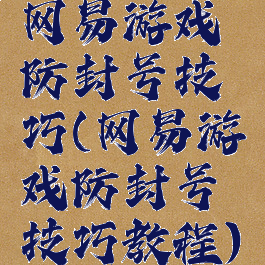 网易游戏
防封号技
巧(网易游
戏防封号
技巧教程)